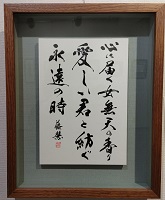 心に届く女無天の香り
愛しい君と紡ぐ
永遠の時